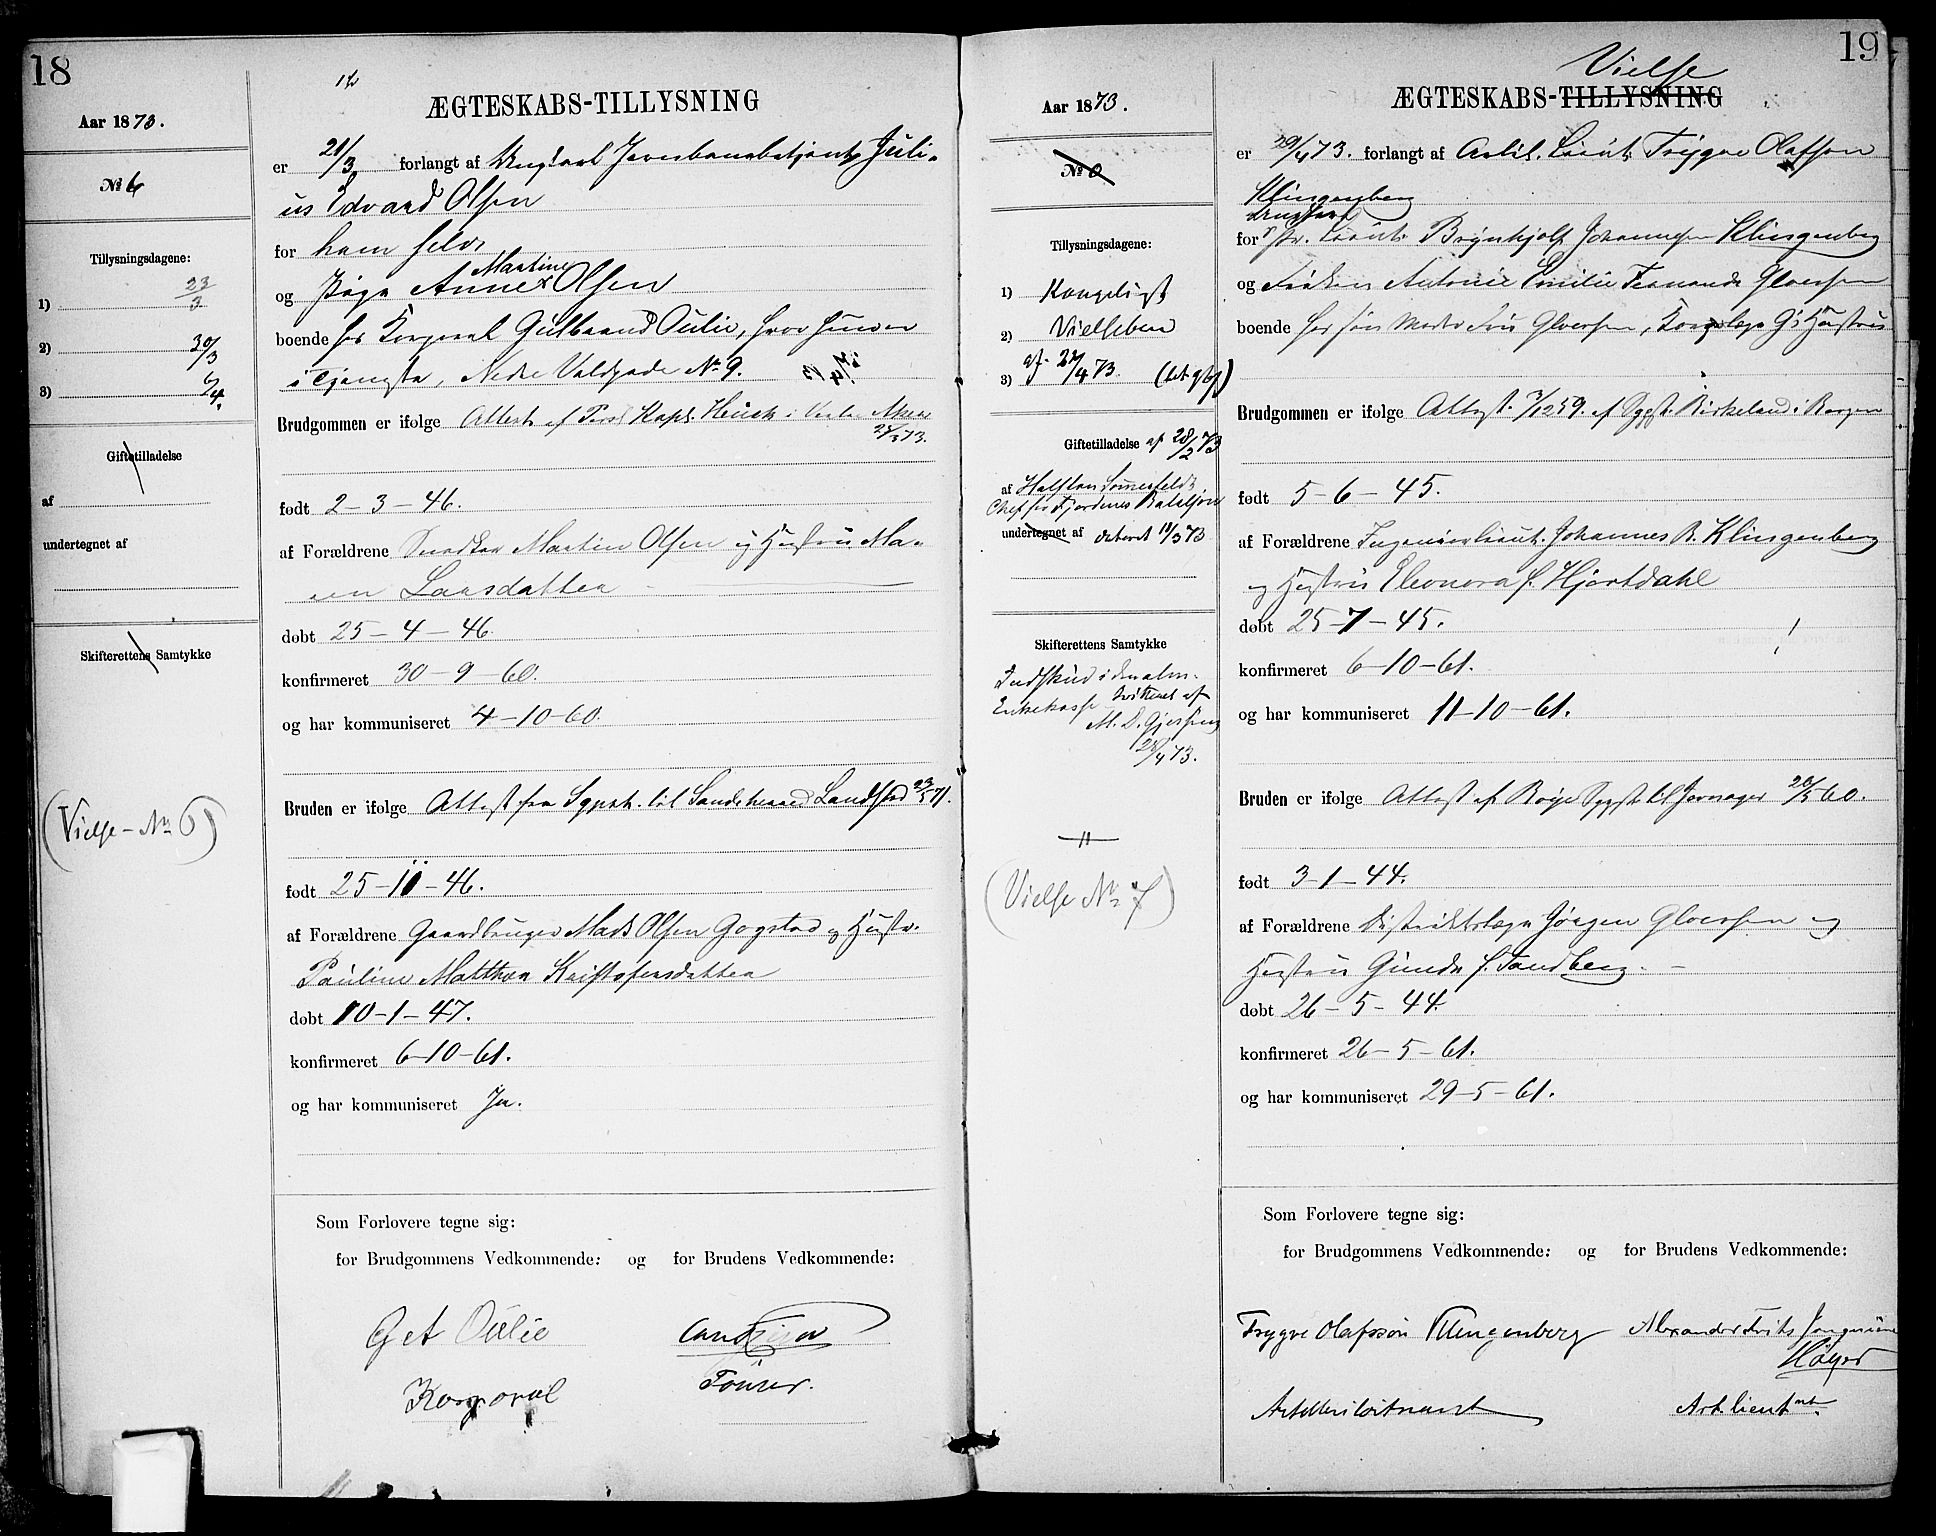 18
Aar 1873.
No 6
Tillysningsdagene:
1) 23/3
2) 30/3
3) 6/4.
Giftetilladelse
af
undertegnet af
Skifterettens Samtykke
(Vielse - No 6)
ÆGTESKABS-TILLYSNING
er 21/3 forlangt af Ungkarl Juli-
us Edvard Olsen
for ham selv
og Pige Anne Martine Olsen
boende hos Korporal Gulbrand Oulie, hvor hun er
i Tjeneste, Nedre Voldgade No 9.
Brudgommen er ifølge Attest af Pers. Kapl. Heuch i Vestre Aker
født 2-3-46.
af Forældrene Martin Olsen og Hustru Ma-
ren Larsdatter
døbt 25-4-46.
konfirmeret 30-9-60.
og har kommuniseret 4-10-60.
Bruden er ifølge Attest fra Sgpr. til Sandeherred Landstad
født 25-11-46.
af Forældrene Gaardbruger Mads Olsen Gogstad og Hustr.
Pauline Mathea Kristofersdatter
døbt 10-1-47.
konfirmeret 6-10-61.
og har kommuniseret Ja.
Som Forlovere tegne sig:
for Brudgommens Vedkommende: og for Brudens Vedkommende:
G et Oulie
Korporal
Fourer.
19
Aar 1873.
No 0
Tillysningsdagene:
1) Kongeligt
2) Vielsebrev
3) af 22/4 73.
Giftetilladelse af 28/2 73
af Halfdan Sommerfeldt
Chef for Fjordenes Bataljon
undertegnet af dateret 11/3 73
Skifterettens Samtykke
Indskud i den alm.
Enkekasse
28/4 73.
(Vielse No 7)
Vielse
ÆGTESKABS-TILLYSNING
er 29/4 73. forlangt af Artil. Lieut. Trygve Olafson
Klingenberg
Ungkarl
for Pr. Lieut. Brynhjolf Johannesen Klingenberg
og Frøken Antonie Emilie Fernanda Gloersen
boende hos sin Moder Fru Gloersen,
Brudgommen er ifølge Attest. af Sgpr. Birkeland i Bergen
født 5-6-45.
af Forældrene Ingeniørlieut. Johannes B. Klingenberg
og Hustru Eleonora f. Hjortdahl
døbt 25-7-45.
konfirmeret 6-10-61.
og har kommuniseret 11-10-61.
Bruden er ifølge Attest af til Jevnager 28/5 60.
født 3-1-44.
af Forældrene Distriktslæge Jørgen Gloersen og
Hustru Gunda f. Sandberg.
døbt 26-5-44.
konfirmeret 26-5-61.
og har kommuniseret 29-5-61.
Som Forlovere tegne sig:
for Brudgommens Vedkommende: og for Brudens Vedkommende:
Trygve Olafssøn Klingenberg
Alexander Frits
Høyer
Art. lieutnt.